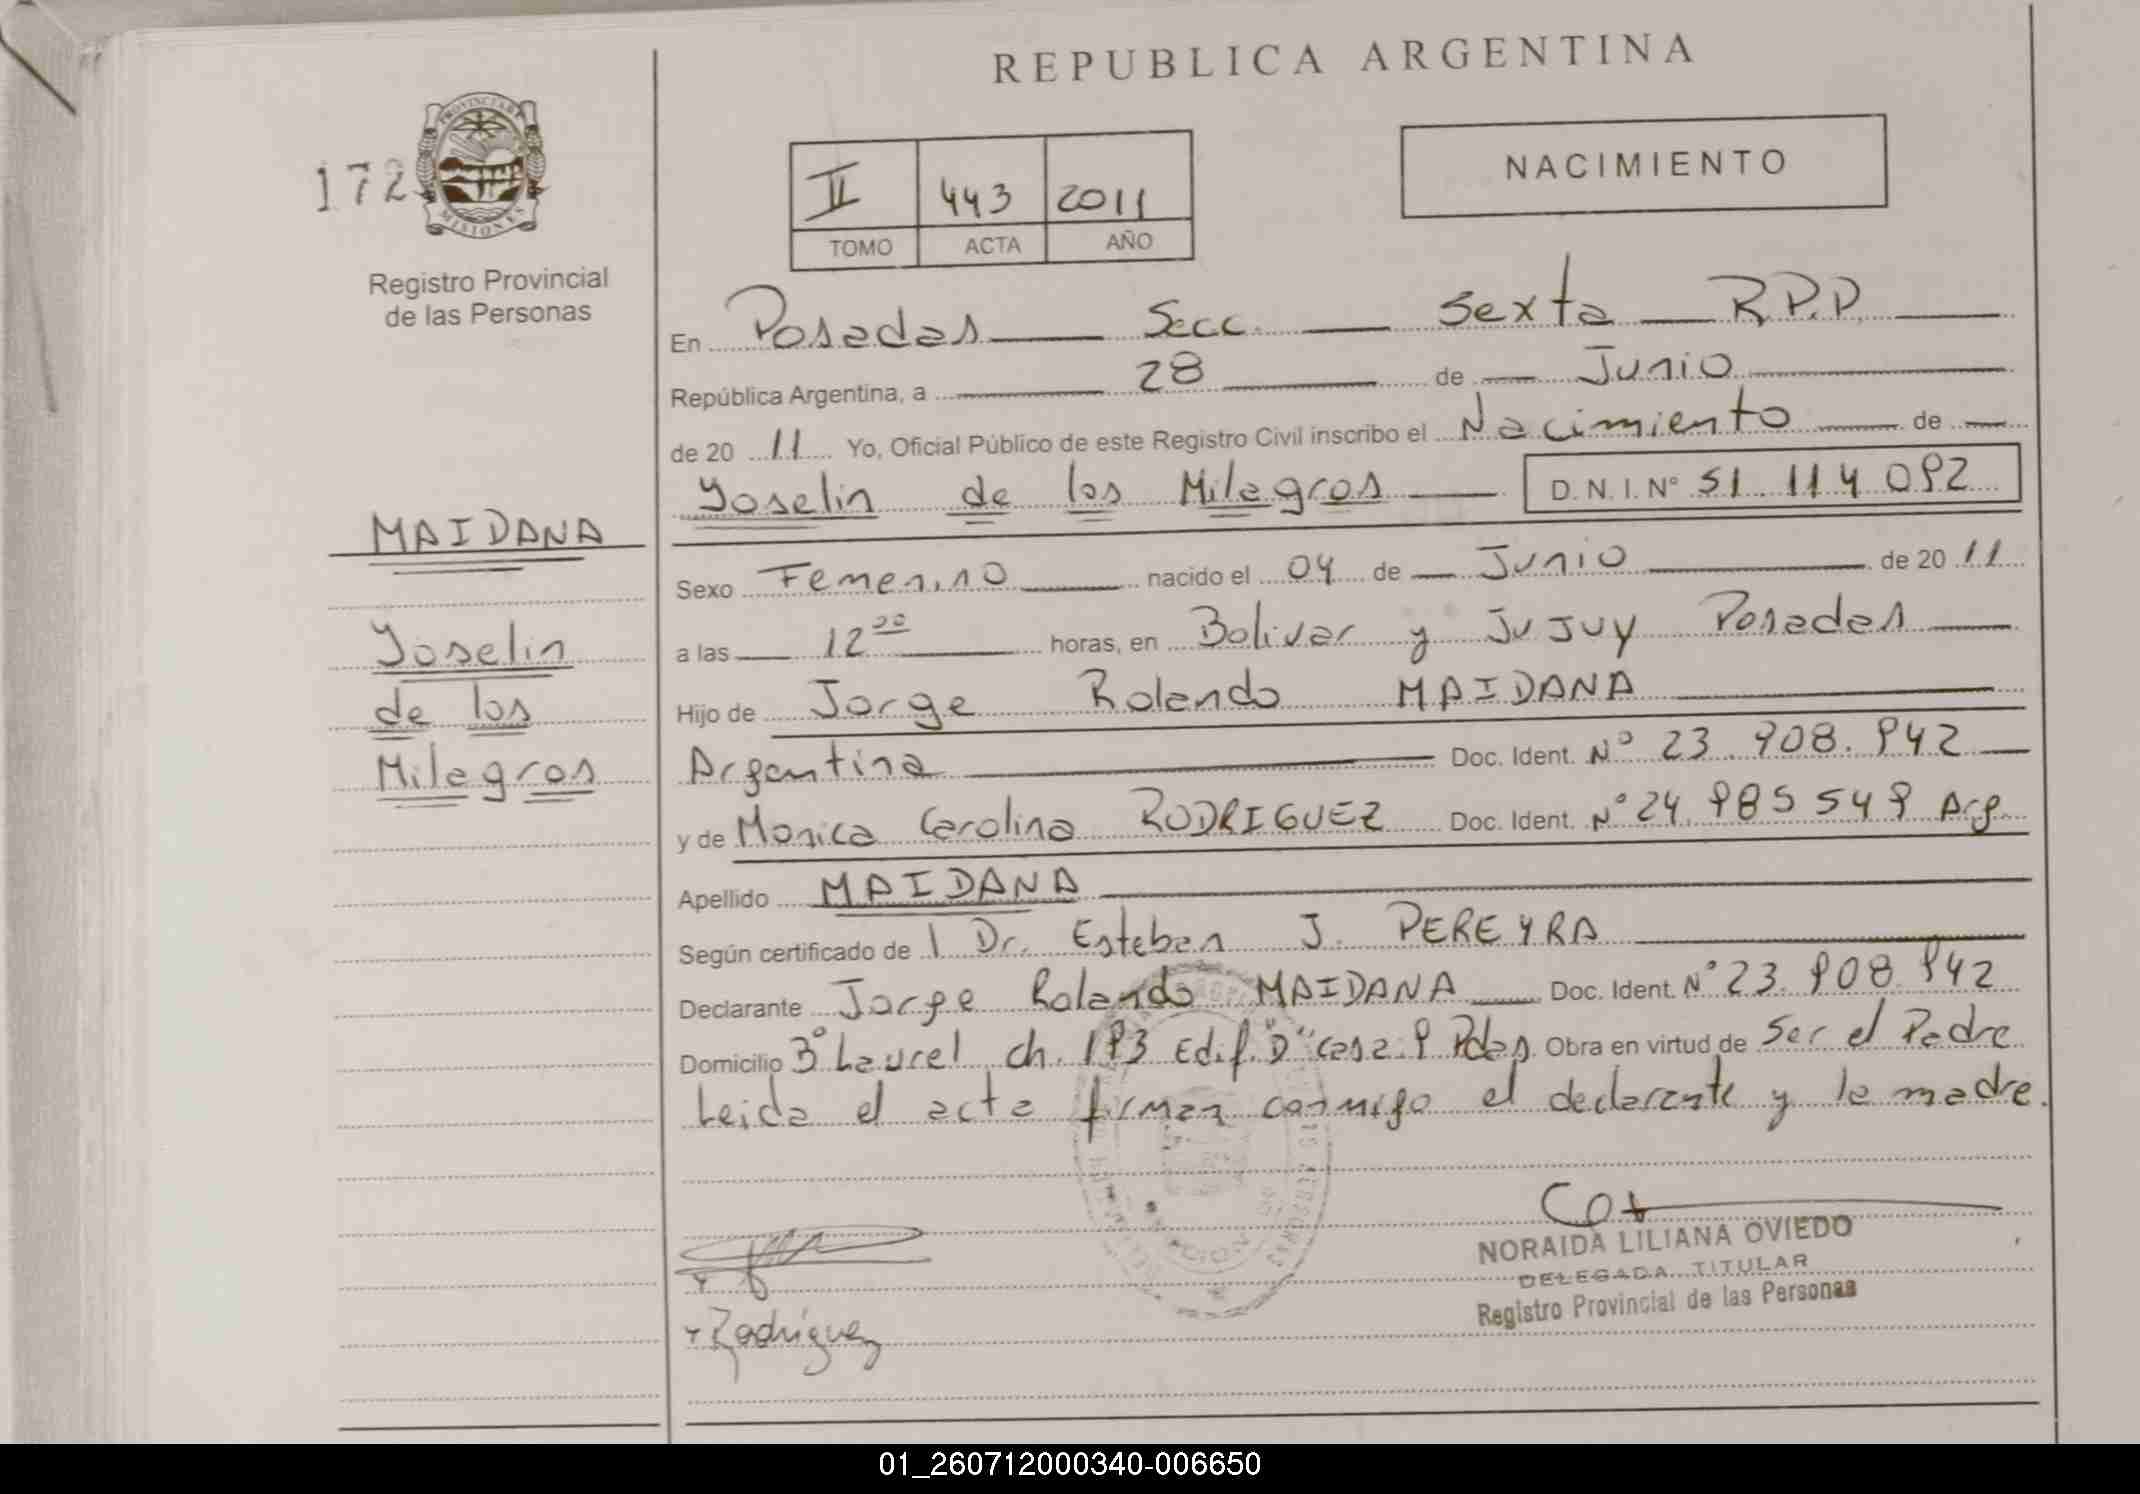 REPUBLICA ARGENTINA
172
PROVINCIA DE
MISIONES
Registro Provincial
de las Personas
II 443 2011
TOMO ACTA AÑO
NACIMIENTO
MAIDANA
Yoselin
de los
Milagros
En Posadas Secc. Sexta R.P.P.
República Argentina, a 28 de Junio
de 20 11 Yo, Oficial Público de este Registro Civil inscribo el Nacimiento de
Yoselin de los Milagros D.N.I. Nº 51.114.092
Sexo Femenino nacido el 04 de Junio de 20 11
a las 12 00 horas, en Bolivar y Jujuy Posadas
Hijo de Jorge Rolando MAIDANA
Argentina Doc. Ident. Nº 23.908.942
y de Monica Carolina RODRIGUEZ Doc. Ident. Nº 24.985549 Arg.
Apellido MAIDANA
Según certificado de l Dr. Esteban J. PEREYRA
Declarante Jorge Rolando MAIDANA Doc. Ident. Nº 23.908.942
Domicilio 3º Laurel ch. 193 Edif. "D" casa 9 Pdas. Obra en virtud de Ser el Padre
Leida el acta firman conmigo el declarante y la madre.
NORAIDA LILIANA OVIEDO
DELEGADA TITULAR
Registro Provincial de las Personas
Rodriguez
01_260712000340-006650